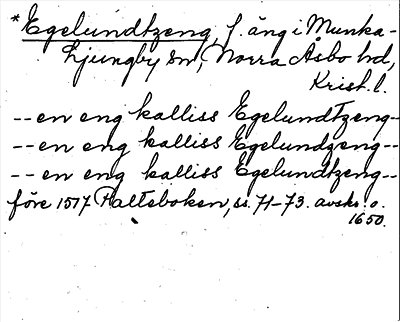 *Egelundtzeng, f. äng i Munka-
Ljungby sn, Norra Åsbo hd,
Krist. l.
-- en eng kalliss Egelundtzeng-
-- en eng kalliss Egelundzeng--
-- en eng kalliss Egelundtzeng--
före 1517 Palteboken, ss. 71-73. avskr. o.
1650.